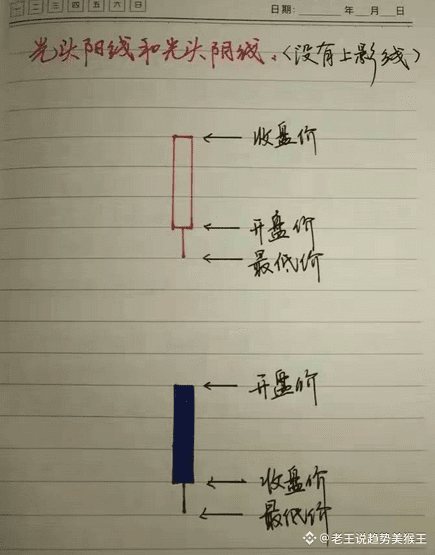 一 二 三 四 五 六 日
日期: 年 月 日
光头阳线和光头阴线。(没有上影线)
收盘价
开盘价
最低价
开盘价
收盘价
最低价
@老王说趋势美猴王